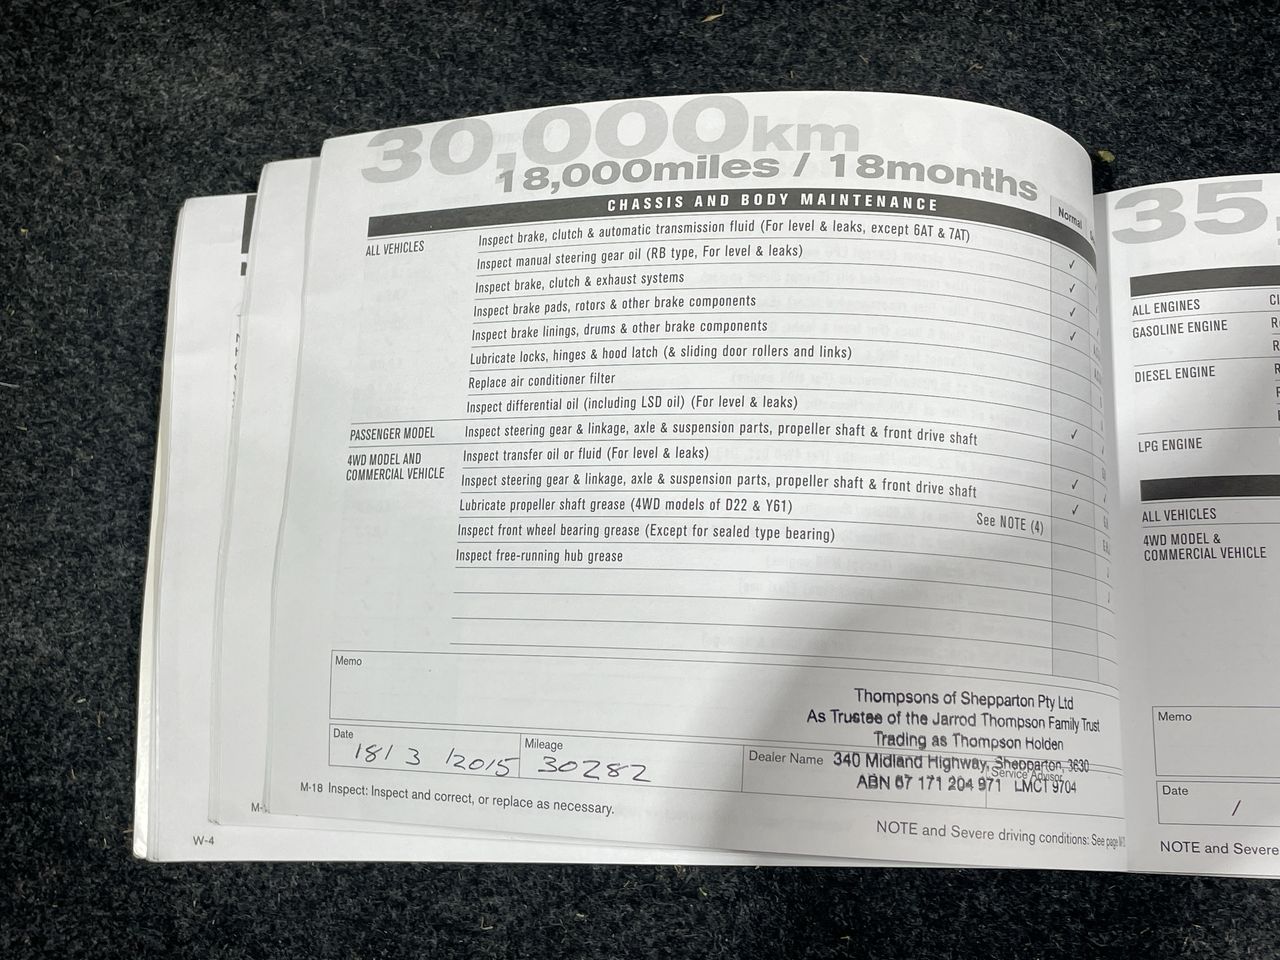 30,000km
18,000miles / 18months
CHASSIS AND BODY MAINTENANCE
Normal
ALL VEHICLES
Inspect brake, clutch & automatic transmission fluid (For level & leaks, except 6AT & 7AT)
Inspect manual steering gear oil (RB type, For level & leaks) ✓
Inspect brake, clutch & exhaust systems ✓
Inspect brake pads, rotors & other brake components ✓
Inspect brake linings, drums & other brake components ✓
Lubricate locks, hinges & hood latch (& sliding door rollers and links)
Replace air conditioner filter
Inspect differential oil (including LSD oil) (For level & leaks)
PASSENGER MODEL
Inspect steering gear & linkage, axle & suspension parts, propeller shaft & front drive shaft ✓
4WD MODEL AND
COMMERCIAL VEHICLE
Inspect transfer oil or fluid (For level & leaks)
Inspect steering gear & linkage, axle & suspension parts, propeller shaft & front drive shaft ✓
Lubricate propeller shaft grease (4WD models of D22 & Y61) ✓
See NOTE (4)
Inspect front wheel bearing grease (Except for sealed type bearing)
Inspect free-running hub grease
Memo
Thompsons of Shepparton Pty Ltd
As Trustee of the Jarrod Thompson Family Trust
Trading as Thompson Holden
340 Midland Highway, Shepparton, 3630
ABN 67 171 204 971 LMCT 9704
Date
18/ 3 /2015
Mileage
30282
Dealer Name
Service Advisor
M-18 Inspect: Inspect and correct, or replace as necessary.
NOTE and Severe driving conditions: See page
W-4
35,
ALL ENGINES
GASOLINE ENGINE
DIESEL ENGINE
LPG ENGINE
ALL VEHICLES
4WD MODEL &
COMMERCIAL VEHICLE
Memo
Date
/
NOTE and Severe